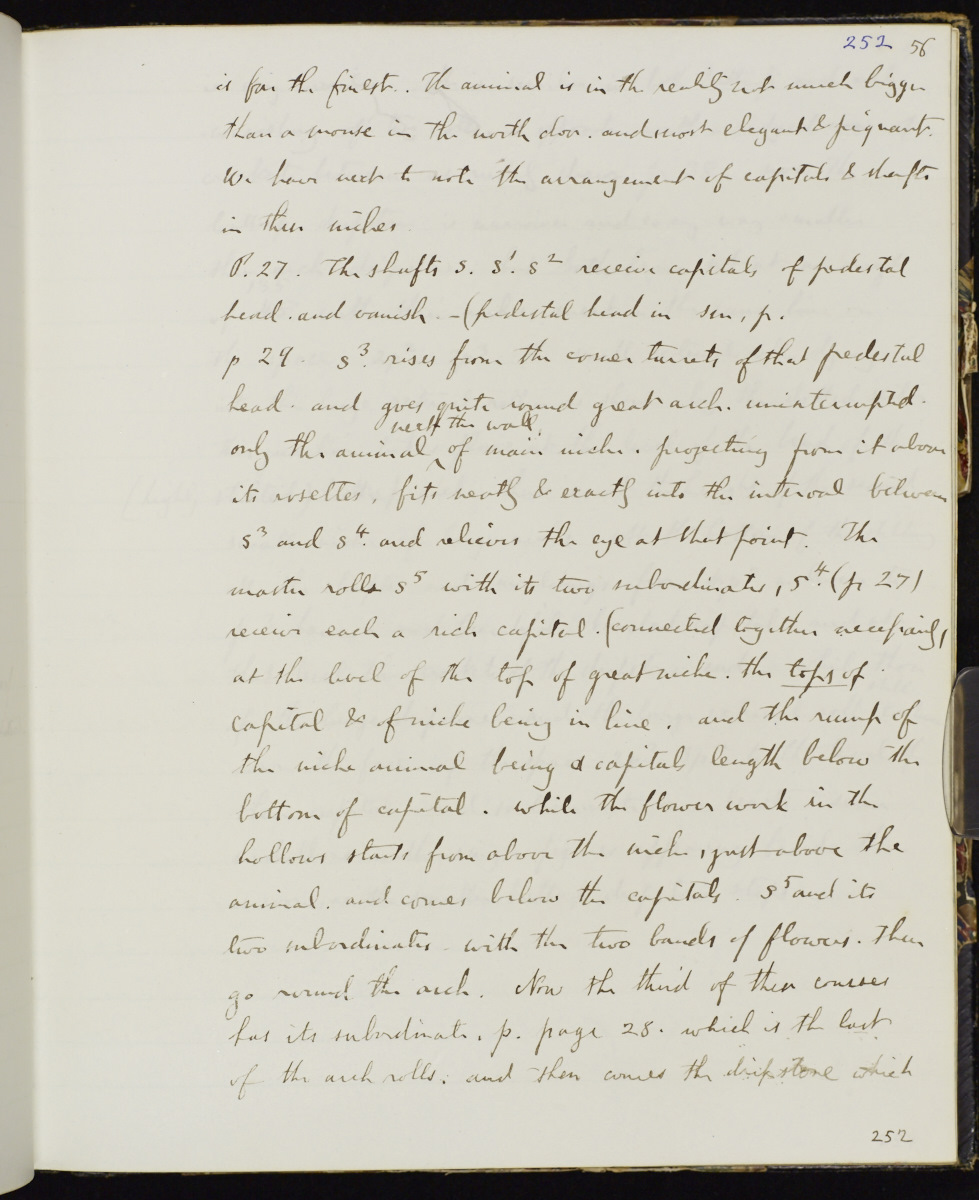 252 56
is far the finest. The animal is in the reality not much bigger
than a mouse in the north door. and most elegant & piquant.
We have next to note the arrangement of capitals & shafts
in these niches.
P. 27. The shafts s. s1. s2 receive capitals of pedestal
head. and vanish - (pedestal head in sm, p.
p 29. s3. rises from the corner turrets of that pedestal
head. and goes quite round great arch. uninterrupted.
next the wall
only the animal ^ of main niche. projecting from it above
its rosettes, fits neatly & exactly into the interval between
s3 and s4. and relieves the eye at that point. The
master rolls s5 with its two subordinates, s4. (p 27)
receive each a rich capital. (connected together necessarily,
at the level of the top of great niche. the tops of
capital & of niche being in line. and the rump of
the niche animal being a capitals length below the
bottom of capital. while the flower work in the
hollows starts from above the niche, just above the
animal. and comes below the capitals. s5 and its
two subordinates - with the two bands of flowers. then
go round the arch. Now the third of these courses
has its subordinate. p. page 28. which is the last
of the arch rolls. and then comes the dripstone which
252